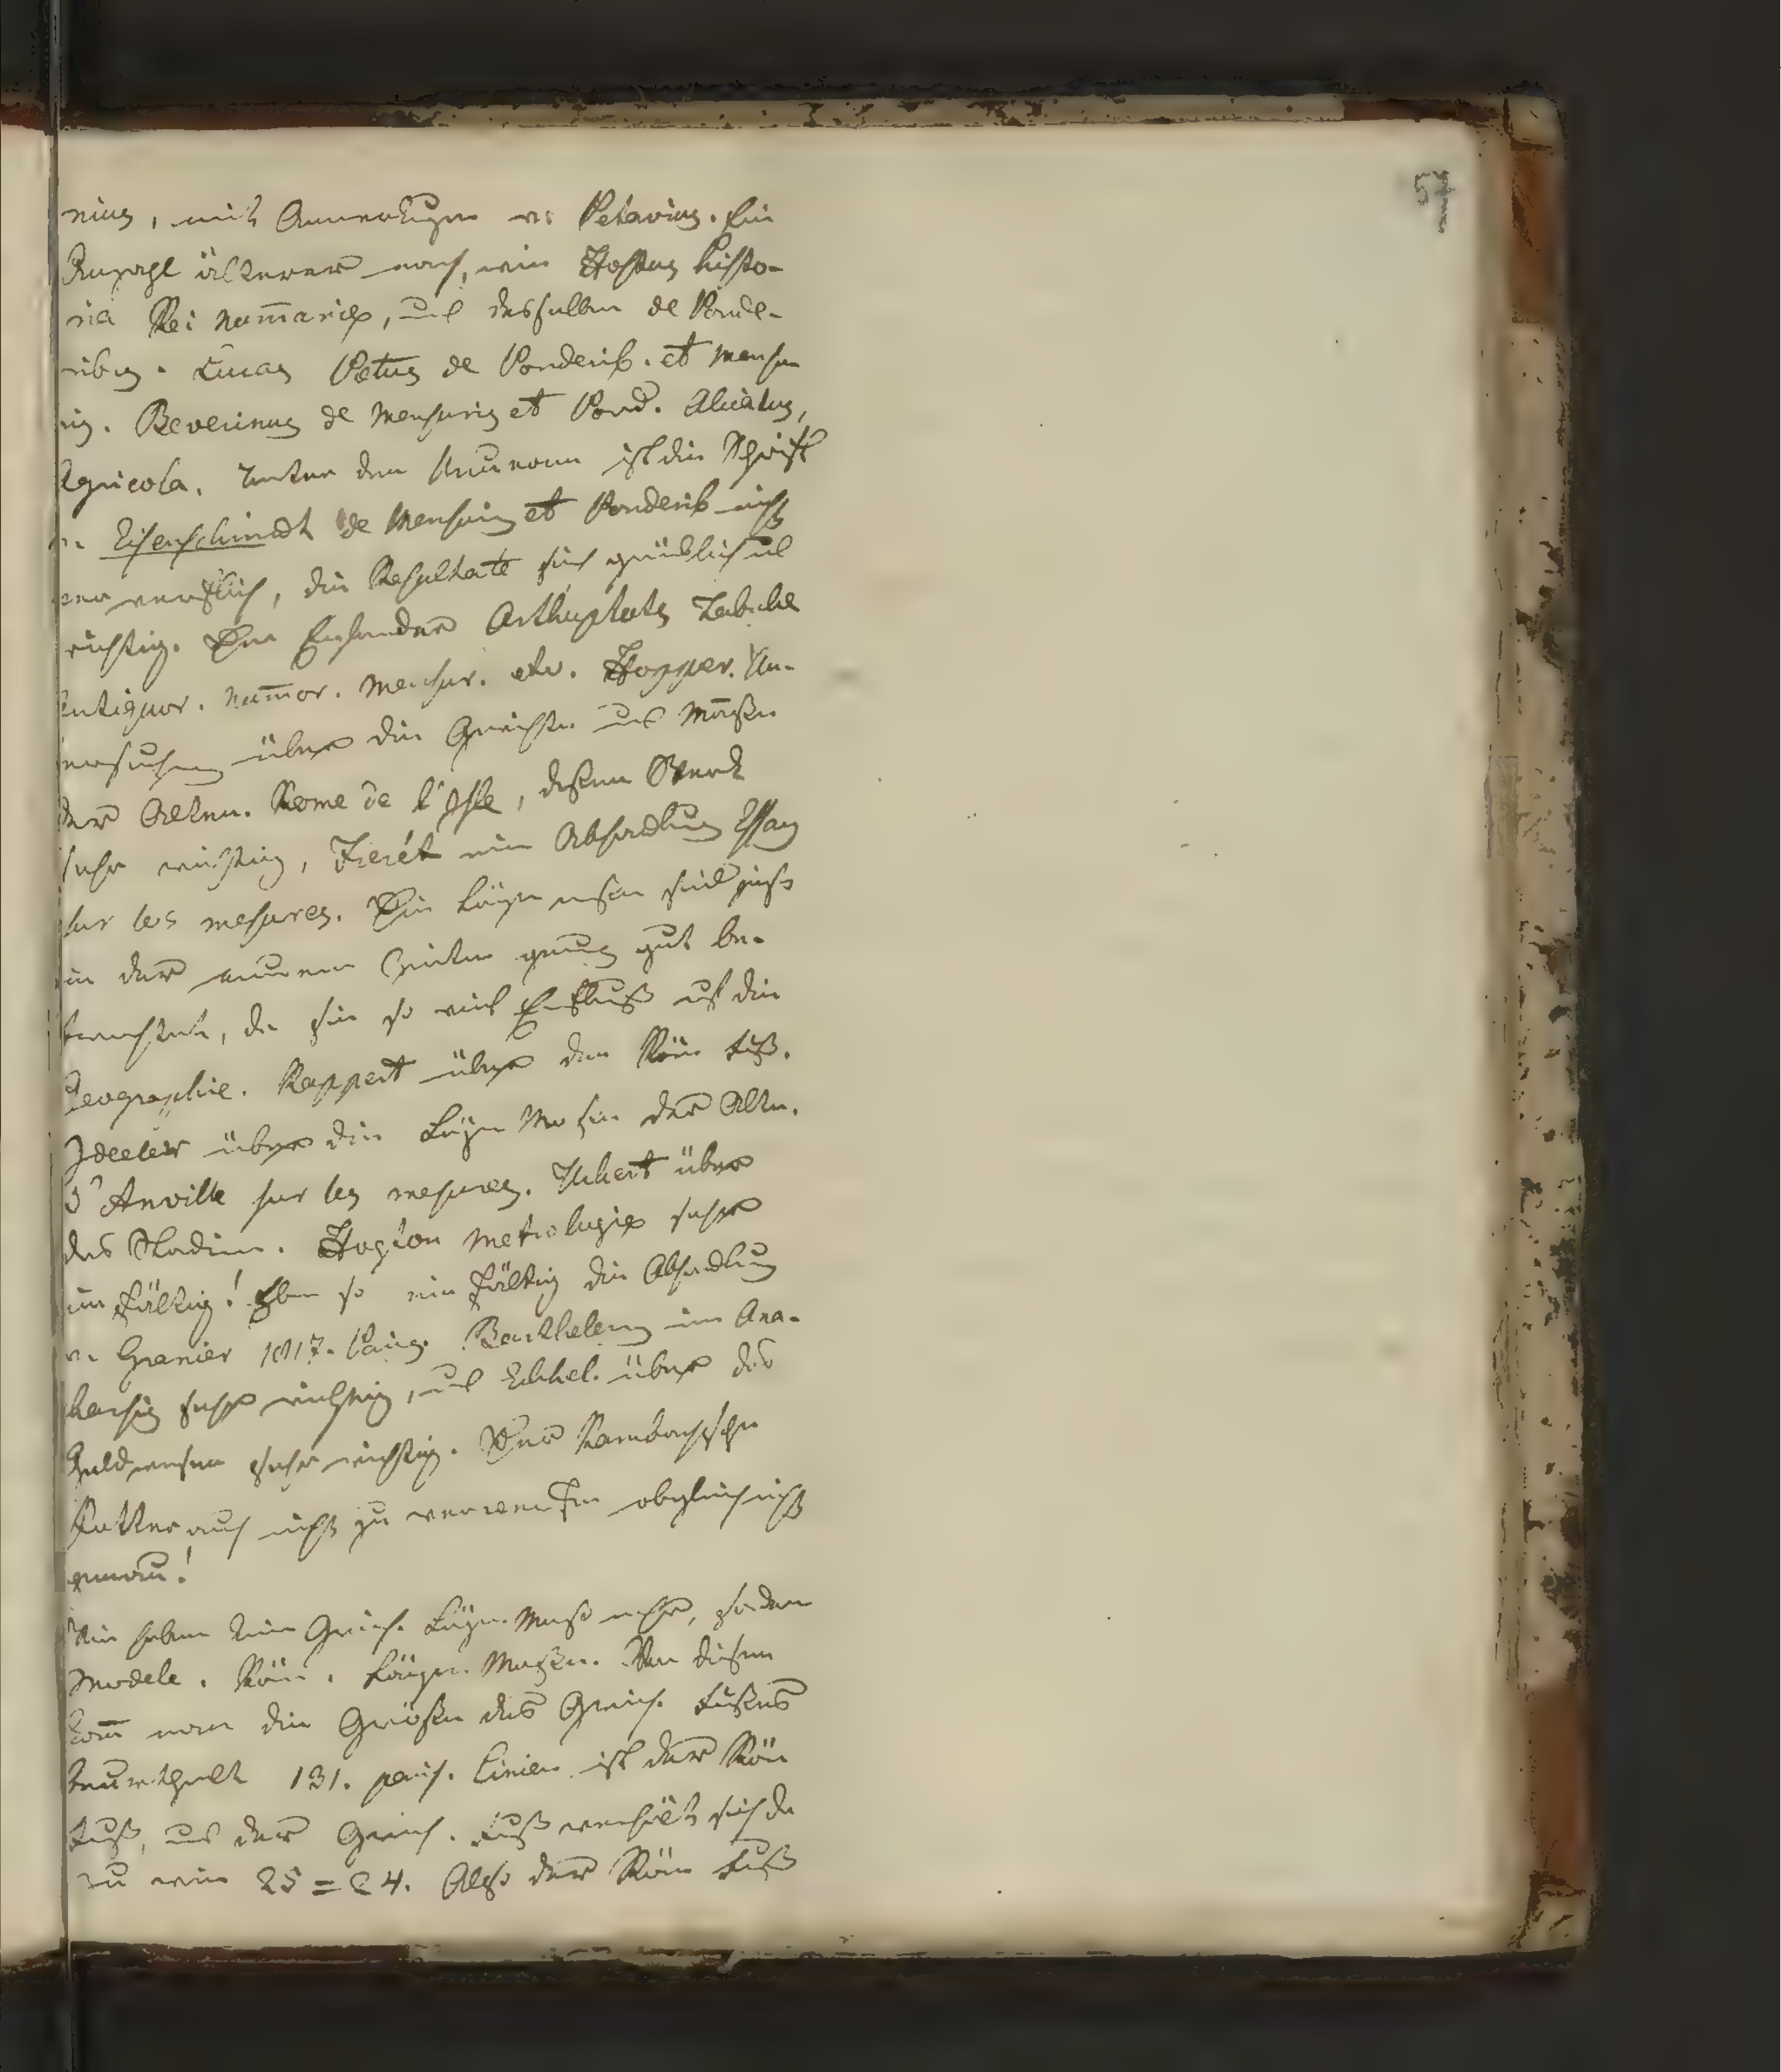 57
nius, mit Anmerkungen v. Petavius. Ein
Anzahl älterer noch, wie Hostus histo-
ria Rei numariae, und desselben de Ponde-
ribus. Lucas Pætus de Ponderib. et Mensu
ris. Beverinus de Mensuris et Pond. Alciatus,
Agricola. Unter den Neueren ist die Schrift
v. Eisenschmidt de Mensuris et Ponderib nicht
die Resultate sind gründlich und
richtig. Der Engländer Arbuthnots Tabulae
antiquor. numor. mensur. etc. Hopper. Un-
tersuchung über die Gewichte und Maaßen
der Alten. Rome de l'Isle, dessen Werck
sehr wichtig, Freret eine Abhandlung Essay
sur les mesures. Die Längen sind
in der neueren Zeiten genug gut be-
trachtet, da sie so viel Einfluß auf die
Geographie. Rappert über den Röm Fuß.
Ideeler über die Längen Maßen der Alten.
D'Anville sur les mesures. Ukert über
das Stadium. Hogton Metrologie sehr
einfältig! Eben so einfältig die Abhandlung
v. Granier 1817. Paris. Barthelemy im Ana-
charsis sehr wichtig, und Eckhel. über das
Geldwesen sehr wichtig. Der Rambachsche
Potter auch nicht zu verwerfen obgleich nicht
genau!
Wir haben kein Griech. Längen Maß mehr, sondern
Modele. Röm. Längen Maßen. Von diesen
kann man die Größen des Griech. Fußes
beurtheilt 131. paris. Linien ist der Röm
Fuß, und der Griech. Fuß verhält sich da
zu wie 25 = 24. Also der Röm Fuß